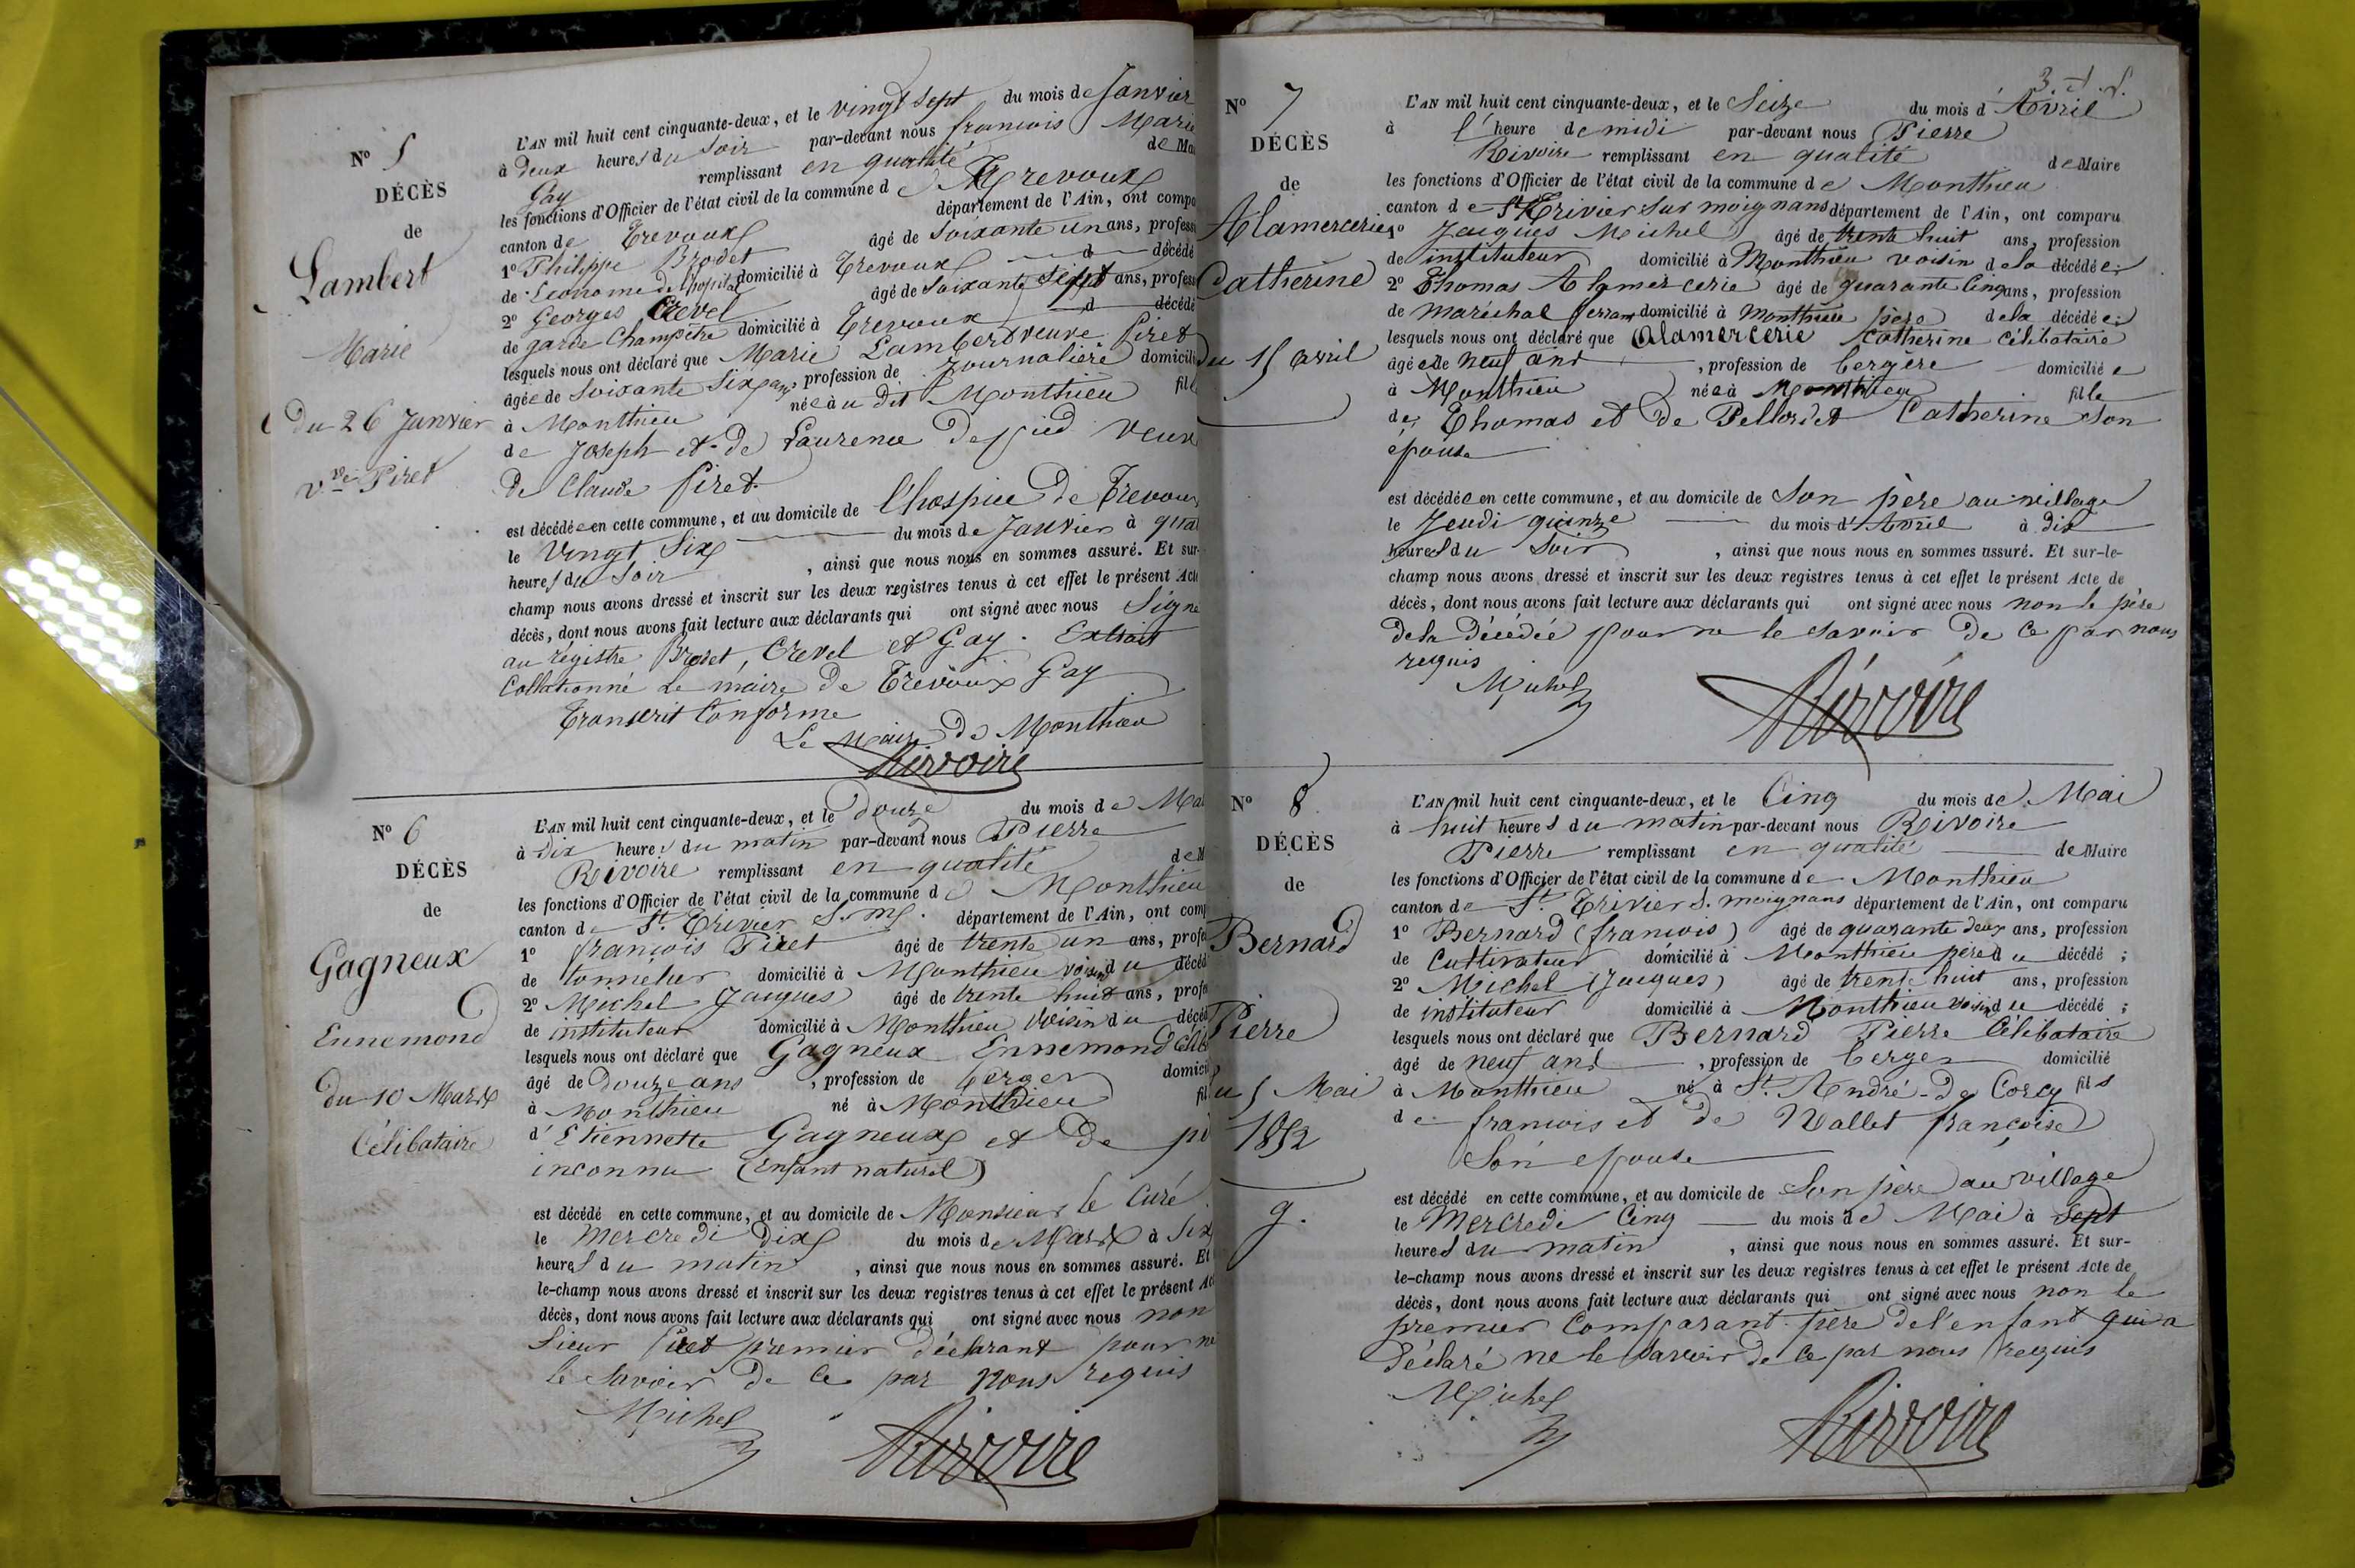 N° 5
DÉCÈS
de
Lambert
Marie
du 26 Janvier
v.ve Piret
L'AN mil huit cent cinquante-deux, et le vingt sept du mois de Janvier
à deux heures du soir par-devant nous francois Marie
Gay remplissant en qualité de Ma
les fonctions d'Officier de l'état civil de la commune de Trevoux
canton de Trevoux département de l'Ain, ont compa
1° Philippe Brodet âgé de soixante un ans, profess
de Econome de l'hopital domicilié à Trevoux d décédé
2° Georges Crevel âgé de soixante sept ans, profess
de garde Champêtre domicilié à Trevoux d décédé
lesquels nous ont déclaré que Marie Lambert veuve Piret
âgée de soixante six ans, profession de Journalière domicili
à Monthieu née au dit Monthieu fille
de Joseph et de Laurence Depied veuve
de Claude Piret
est décédée en cette commune, et au domicile de l'hospice de Trevoux
le vingt six du mois de Janvier à quat
heures du soir, ainsi que nous nous en sommes assuré. Et sur-
champ nous avons dressé et inscrit sur les deux registres tenus à cet effet le présent Acte
décès, dont nous avons fait lecture aux déclarants qui ont signé avec nous Signé
au registre Brodet, Crevel et Gay. Extrait
Collationné Le maire de Trévoux Gay
Transcrit Conforme
Le Maire de Monthieu
Rivoire
N° 6
DÉCÈS
de
Gagneux
Ennemond
du 10 Mars
Célibataire
L'AN mil huit cent cinquante-deux, et le Douze du mois de Mar
à dix heures du matin par-devant nous Pierre
Rivoire remplissant en qualité de M
les fonctions d'Officier de l'état civil de la commune de Monthieu
canton de St. Trivier S. m. département de l'Ain, ont comp
1° francois Piret âgé de trente un ans, profes
de tonnelier domicilié à Monthieu voisin du décéd
2° Michel Jacques âgé de trente huit ans, profes
de instituteur domicilié à Monthieu voisin du décéd
lesquels nous ont déclaré que Gagneux Ennemond Célib
âgé de Douze ans, profession de berger domicil
à Monthieu né à Monthieu fil
d'Etiennette Gagneux et de pè
inconnu (enfant naturel)
est décédé en cette commune, et au domicile de Monsieur le Curé
le Mercredi Dix du mois de Mars à Six
heures du matin, ainsi que nous nous en sommes assuré. Et
le-champ nous avons dressé et inscrit sur les deux registres tenus à cet effet le présent Ac
décès, dont nous avons fait lecture aux déclarants qui ont signé avec nous non
Sieur Piret premier déclarant pour ne
le savoir de ce par nous requis
Michel
Rivoire
3. S.
N° 7
DÉCÈS
de
Alamercerie
Catherine
du 15 avril
L'AN mil huit cent cinquante-deux, et le Seize du mois d'Avril
à l'heure de midi par-devant nous Pierre
Rivoire remplissant en qualité de Maire
les fonctions d'Officier de l'état civil de la commune de Monthieu
canton de St Trivier sur moignans département de l'Ain, ont comparu
1° Jacques Michel âgé de trente huit ans, profession
de instituteur domicilié à Monthieu voisin de la décédée;
2° Thomas Alamercerie âgé de quarante Cinq ans, profession
de maréchal ferrant domicilié à Monthieu père de la décédée;
lesquels nous ont déclaré que Alamercerie Catherine Célibataire
âgée de neuf ans, profession de bergère domiciliée
à Monthieu née à Monthieu fille
de Thomas et de Pellordet Catherine son
épouse
est décédée en cette commune, et au domicile de Son père au village
le Jeudi quinze du mois d'Avril à dix
heures du soir, ainsi que nous nous en sommes assuré. Et sur-le-
champ nous avons dressé et inscrit sur les deux registres tenus à cet effet le présent Acte de
décès, dont nous avons fait lecture aux déclarants qui ont signé avec nous non le père
de la décédée pour ne le savoir de ce par nous
requis
Michel
Rivoire
N° 8
DÉCÈS
de
Bernard
Pierre
du 5 Mai
1852
g.
L'AN mil huit cent cinquante-deux, et le Cinq du mois de Mai
à huit heures du matin par-devant nous Rivoire
Pierre remplissant en qualité de Maire
les fonctions d'Officier de l'état civil de la commune de Monthieu
canton de St. Trivier S. moignans département de l'Ain, ont comparu
1° Bernard (francois) âgé de quarante deux ans, profession
de Cultivateur domicilié à Monthieu père du décédé;
2° Michel (Jacques) âgé de trente huit ans, profession
de instituteur domicilié à Monthieu voisin du décédé;
lesquels nous ont déclaré que Bernard Pierre Célibataire
âgé de neuf ans, profession de berger domicilié
à Monthieu né à St. André-de Corcy fils
de francois et de Vallet françoise
Son epouse
est décédé en cette commune, et au domicile de Son père au village
le Mercredi Cinq du mois de Mai à Sept
heures du matin, ainsi que nous nous en sommes assuré. Et sur-
le-champ nous avons dressé et inscrit sur les deux registres tenus à cet effet le présent Acte de
décès, dont nous avons fait lecture aux déclarants qui ont signé avec nous non le
premier Comparant père de l'enfant qui a
déclaré ne le savoir de ce par nous requis
Michel
Rivoire